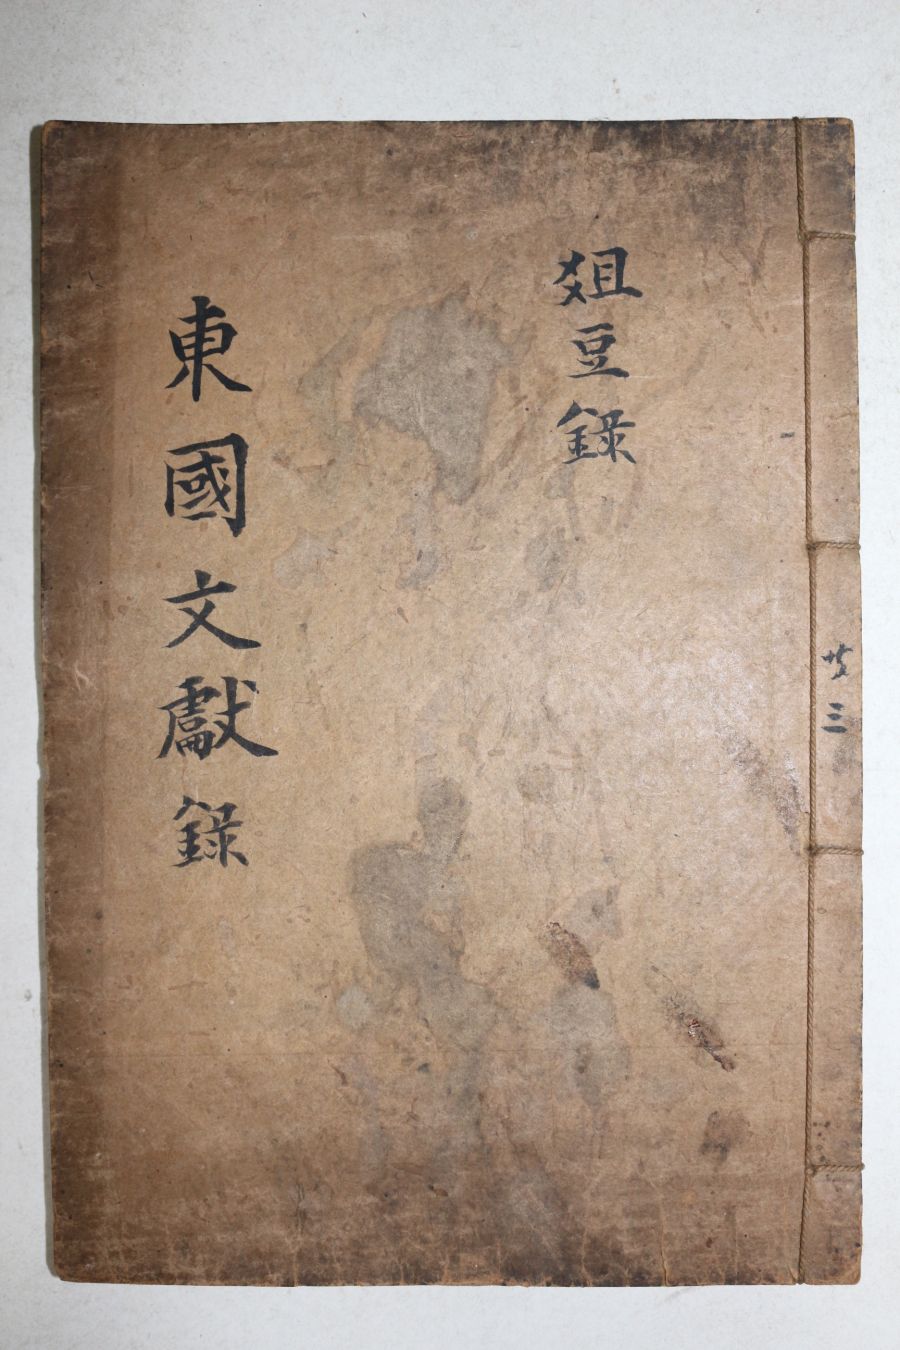 共三
爼豆錄
東國文獻錄